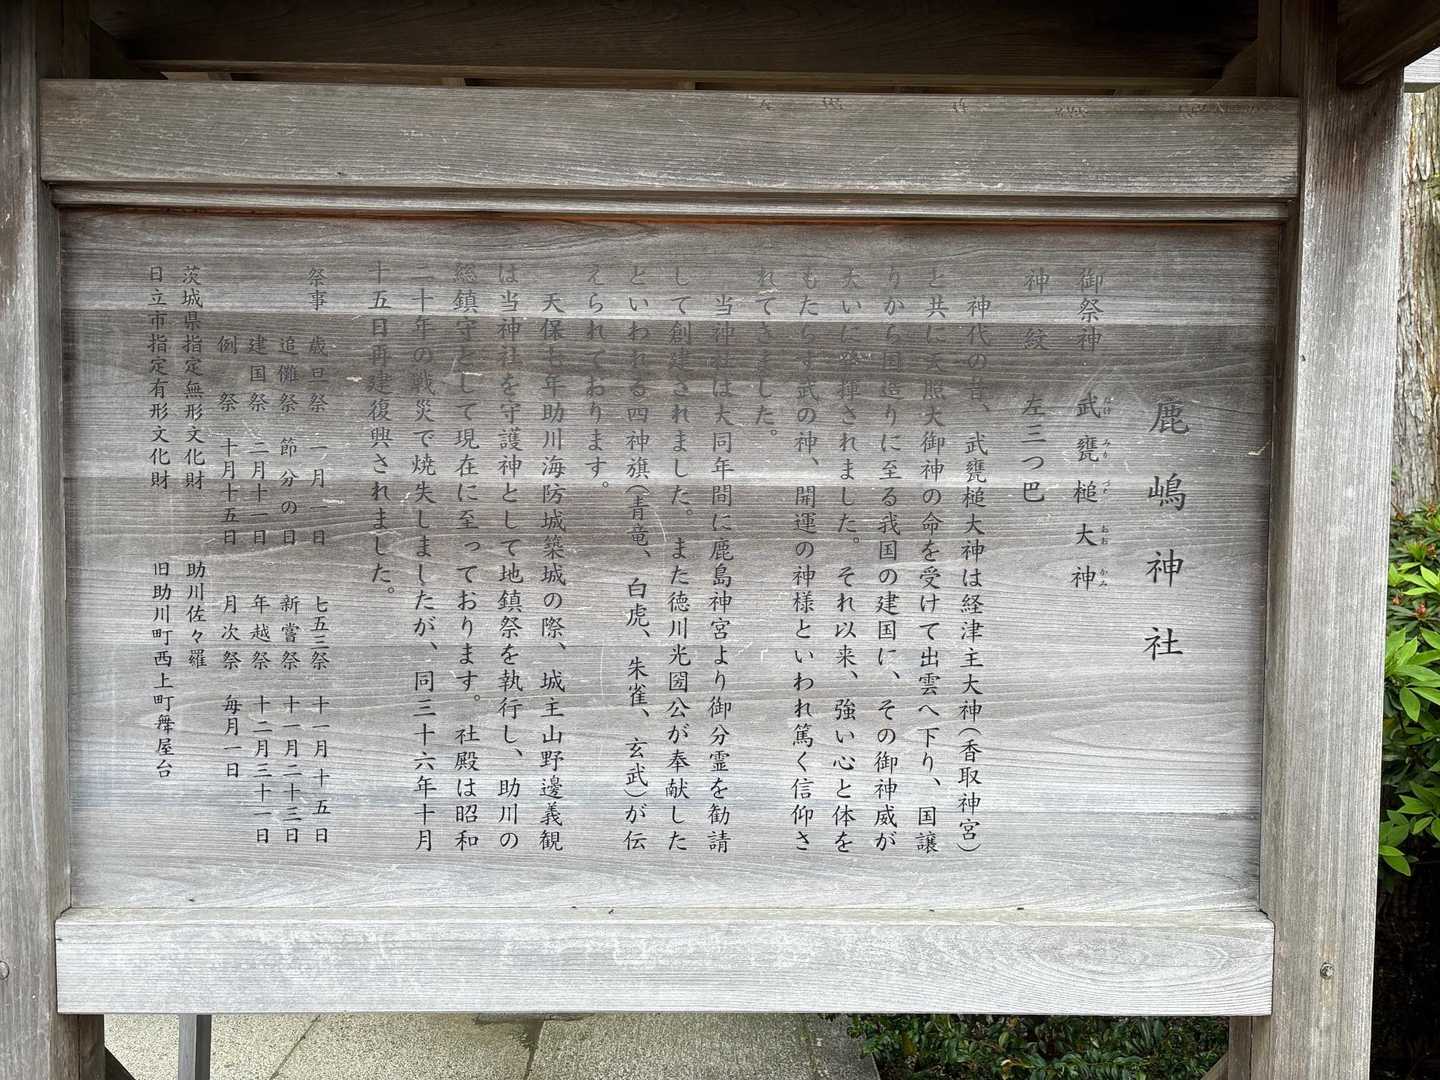 鹿嶋神社
御祭神　武甕槌大神
たけみかづちおおかみ
神紋　左三つ巴
神代の昔、武甕槌大神は経津主大神(香取神宮)
と共に天照大御神の命を受けて出雲へ下り、国譲
りから国造りに至る我国の建国に、その御神威が
大いに発揮されました。それ以来、強い心と体を
もたらす武の神、開運の神様といわれ篤く信仰さ
れてきました。
当神社は大同年間に鹿島神宮より御分霊を勧請
して創建されました。また徳川光圀公が奉献した
といわれる四神旗(青竜、白虎、朱雀、玄武)が伝
えられております。
天保七年助川海防城築城の際、城主山野邊義観
は当神社を守護神として地鎮祭を執行し、助川の
総鎮守として現在に至っております。社殿は昭和
二十年の戦災で焼失しましたが、同三十六年十月
十五日再建復興されました。
祭事　歳旦祭　一月一日　七五三祭　十一月十五日
追儺祭　節分の日　新嘗祭　十一月二十三日
建国祭　二月十一日　年越祭　十二月三十一日
例祭　十月十五日　月次祭　毎月一日
茨城県指定無形文化財　助川佐々羅
日立市指定有形文化財　旧助川町西上町舞屋台